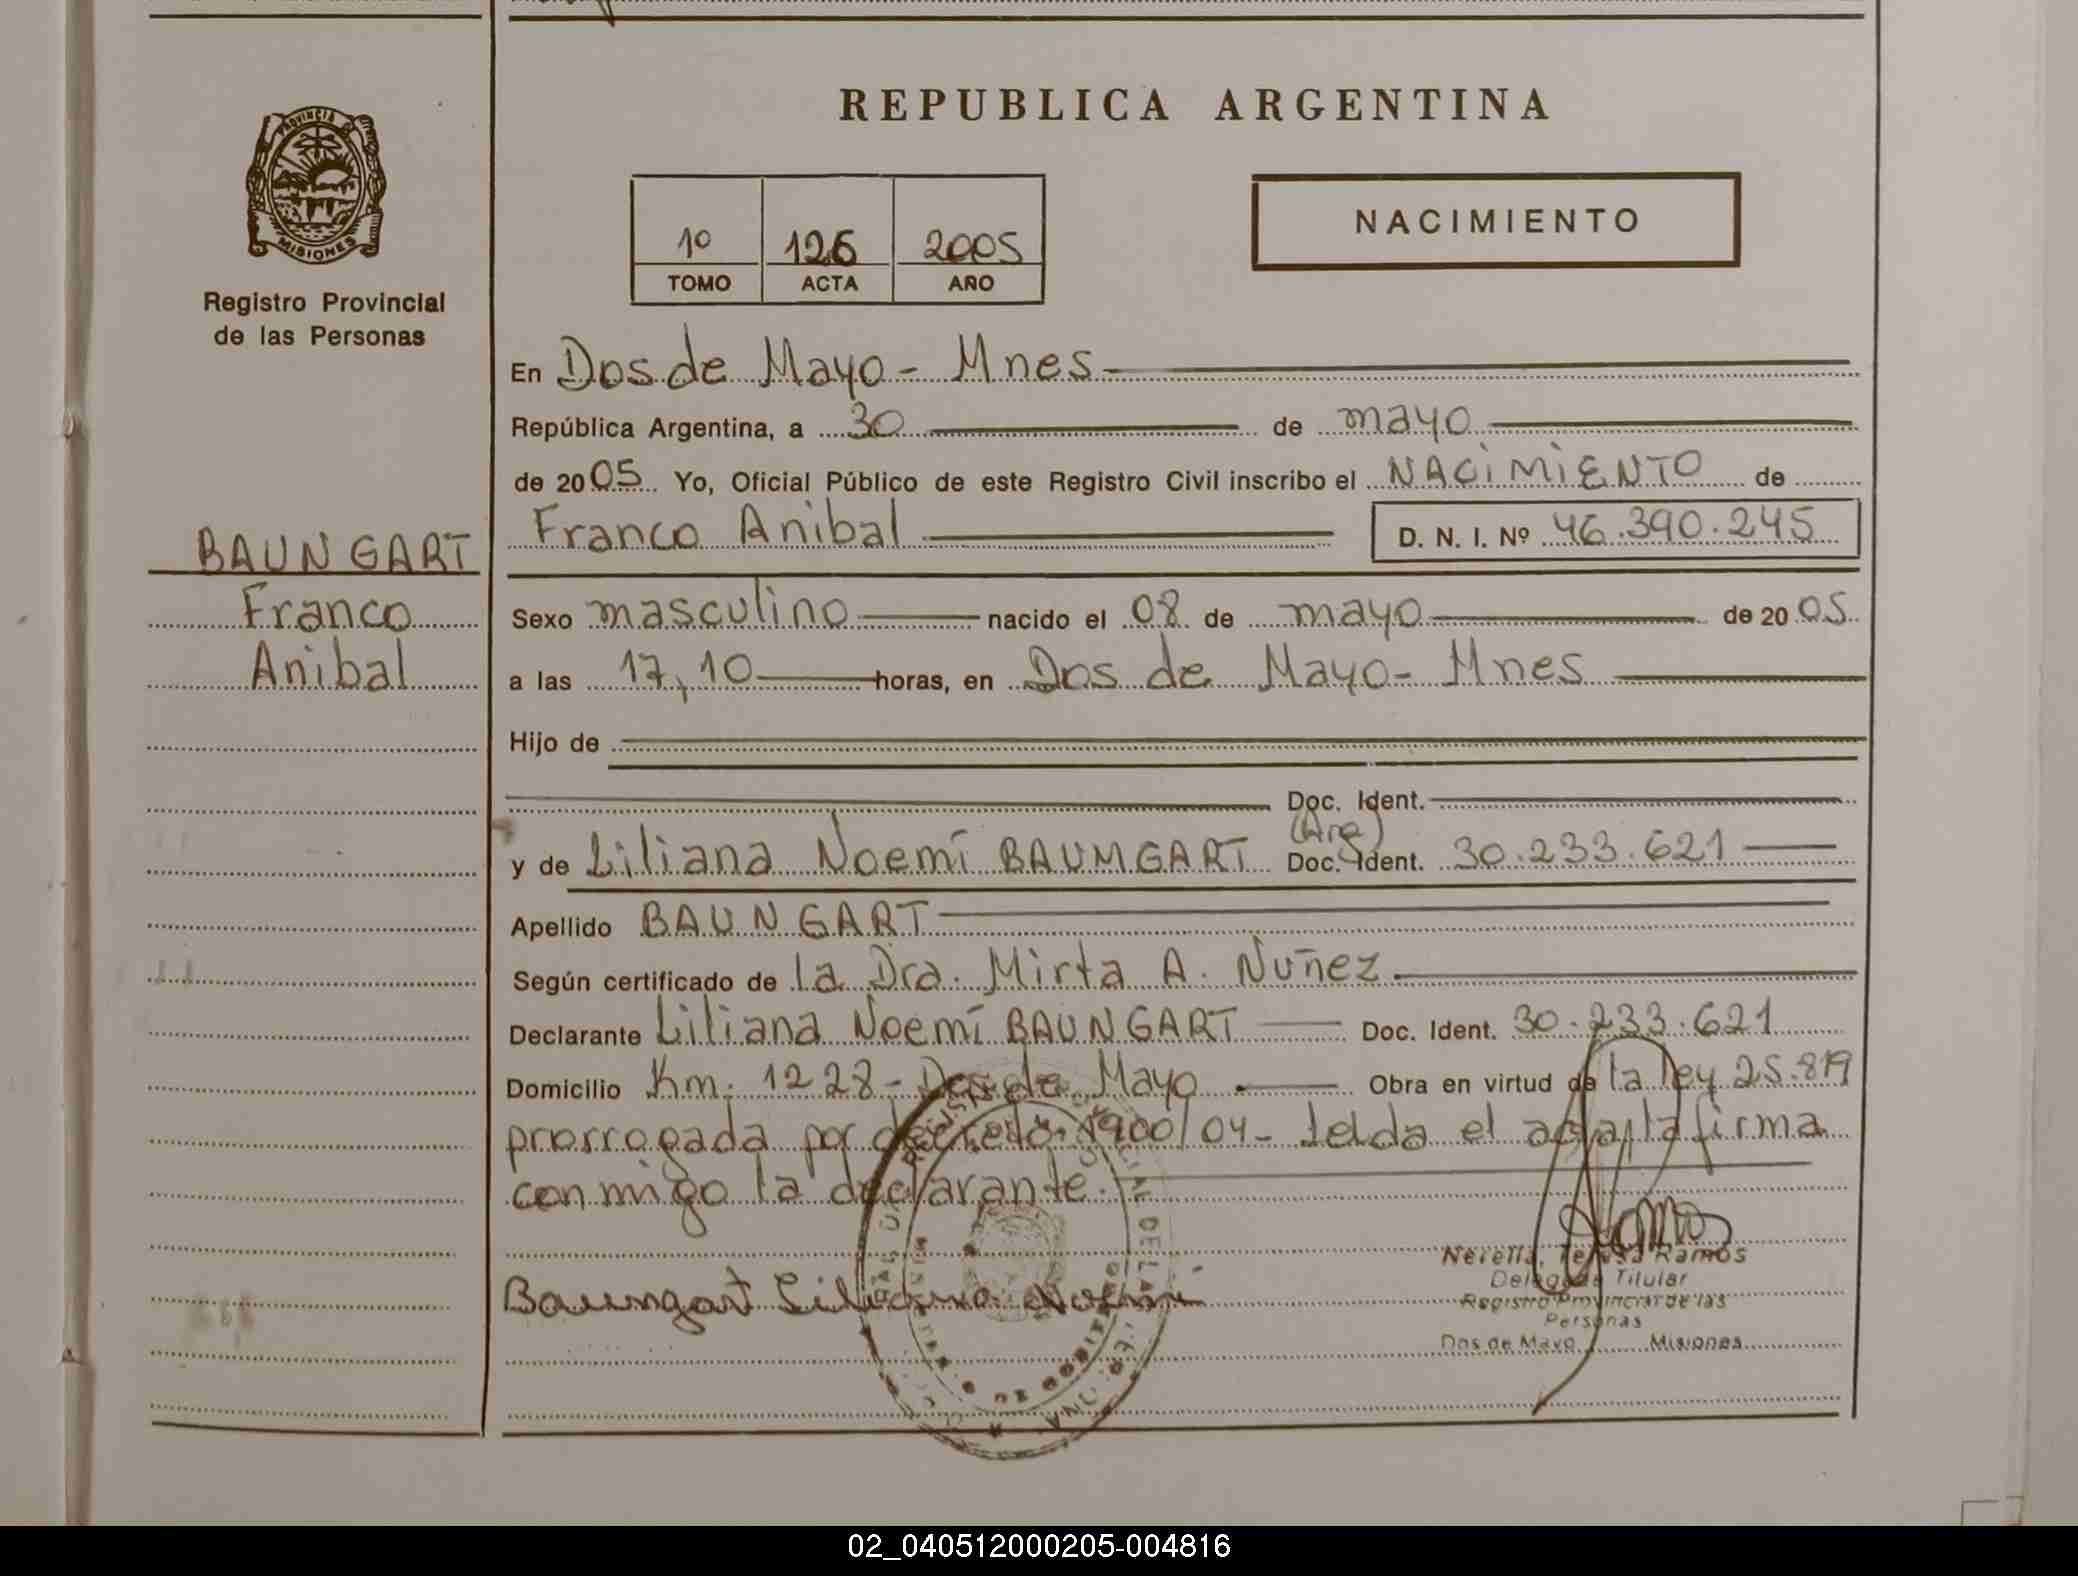 REPUBLICA ARGENTINA
PROVINCIA DE
MISIONES
Registro Provincial
de las Personas
1º 126 2005
TOMO ACTA AÑO
NACIMIENTO
En Dos de Mayo - Mnes
República Argentina, a 30 de mayo
de 2005 Yo, Oficial Público de este Registro Civil inscribo el NACIMIENTO de
Franco Anibal D. N. I. Nº 46.390.245
BAUNGART
Franco
Anibal
Sexo masculino nacido el 08 de mayo de 2005
a las 17,10 horas, en Dos de Mayo - Mnes
Hijo de
Doc. Ident.
(Arg)
y de Liliana Noemí BAUMGART Doc. Ident. 30.233.621
Apellido BAUNGART
Según certificado de la Dra. Mirta A. Nuñez
Declarante Liliana Noemí BAUNGART Doc. Ident. 30.233.621
Domicilio Km. 1228 - Dos de Mayo. Obra en virtud de la ley 25.819
prorrogada por decreto 1900/04 - Leída el acta la firma
conmigo la declarante.
Baumgart Liliana Noemi
Nerella, Teresa Ramos
Delegada Titular
Registro Provincial de las
Personas
Dos de Mayo Misiones
02_040512000205-004816